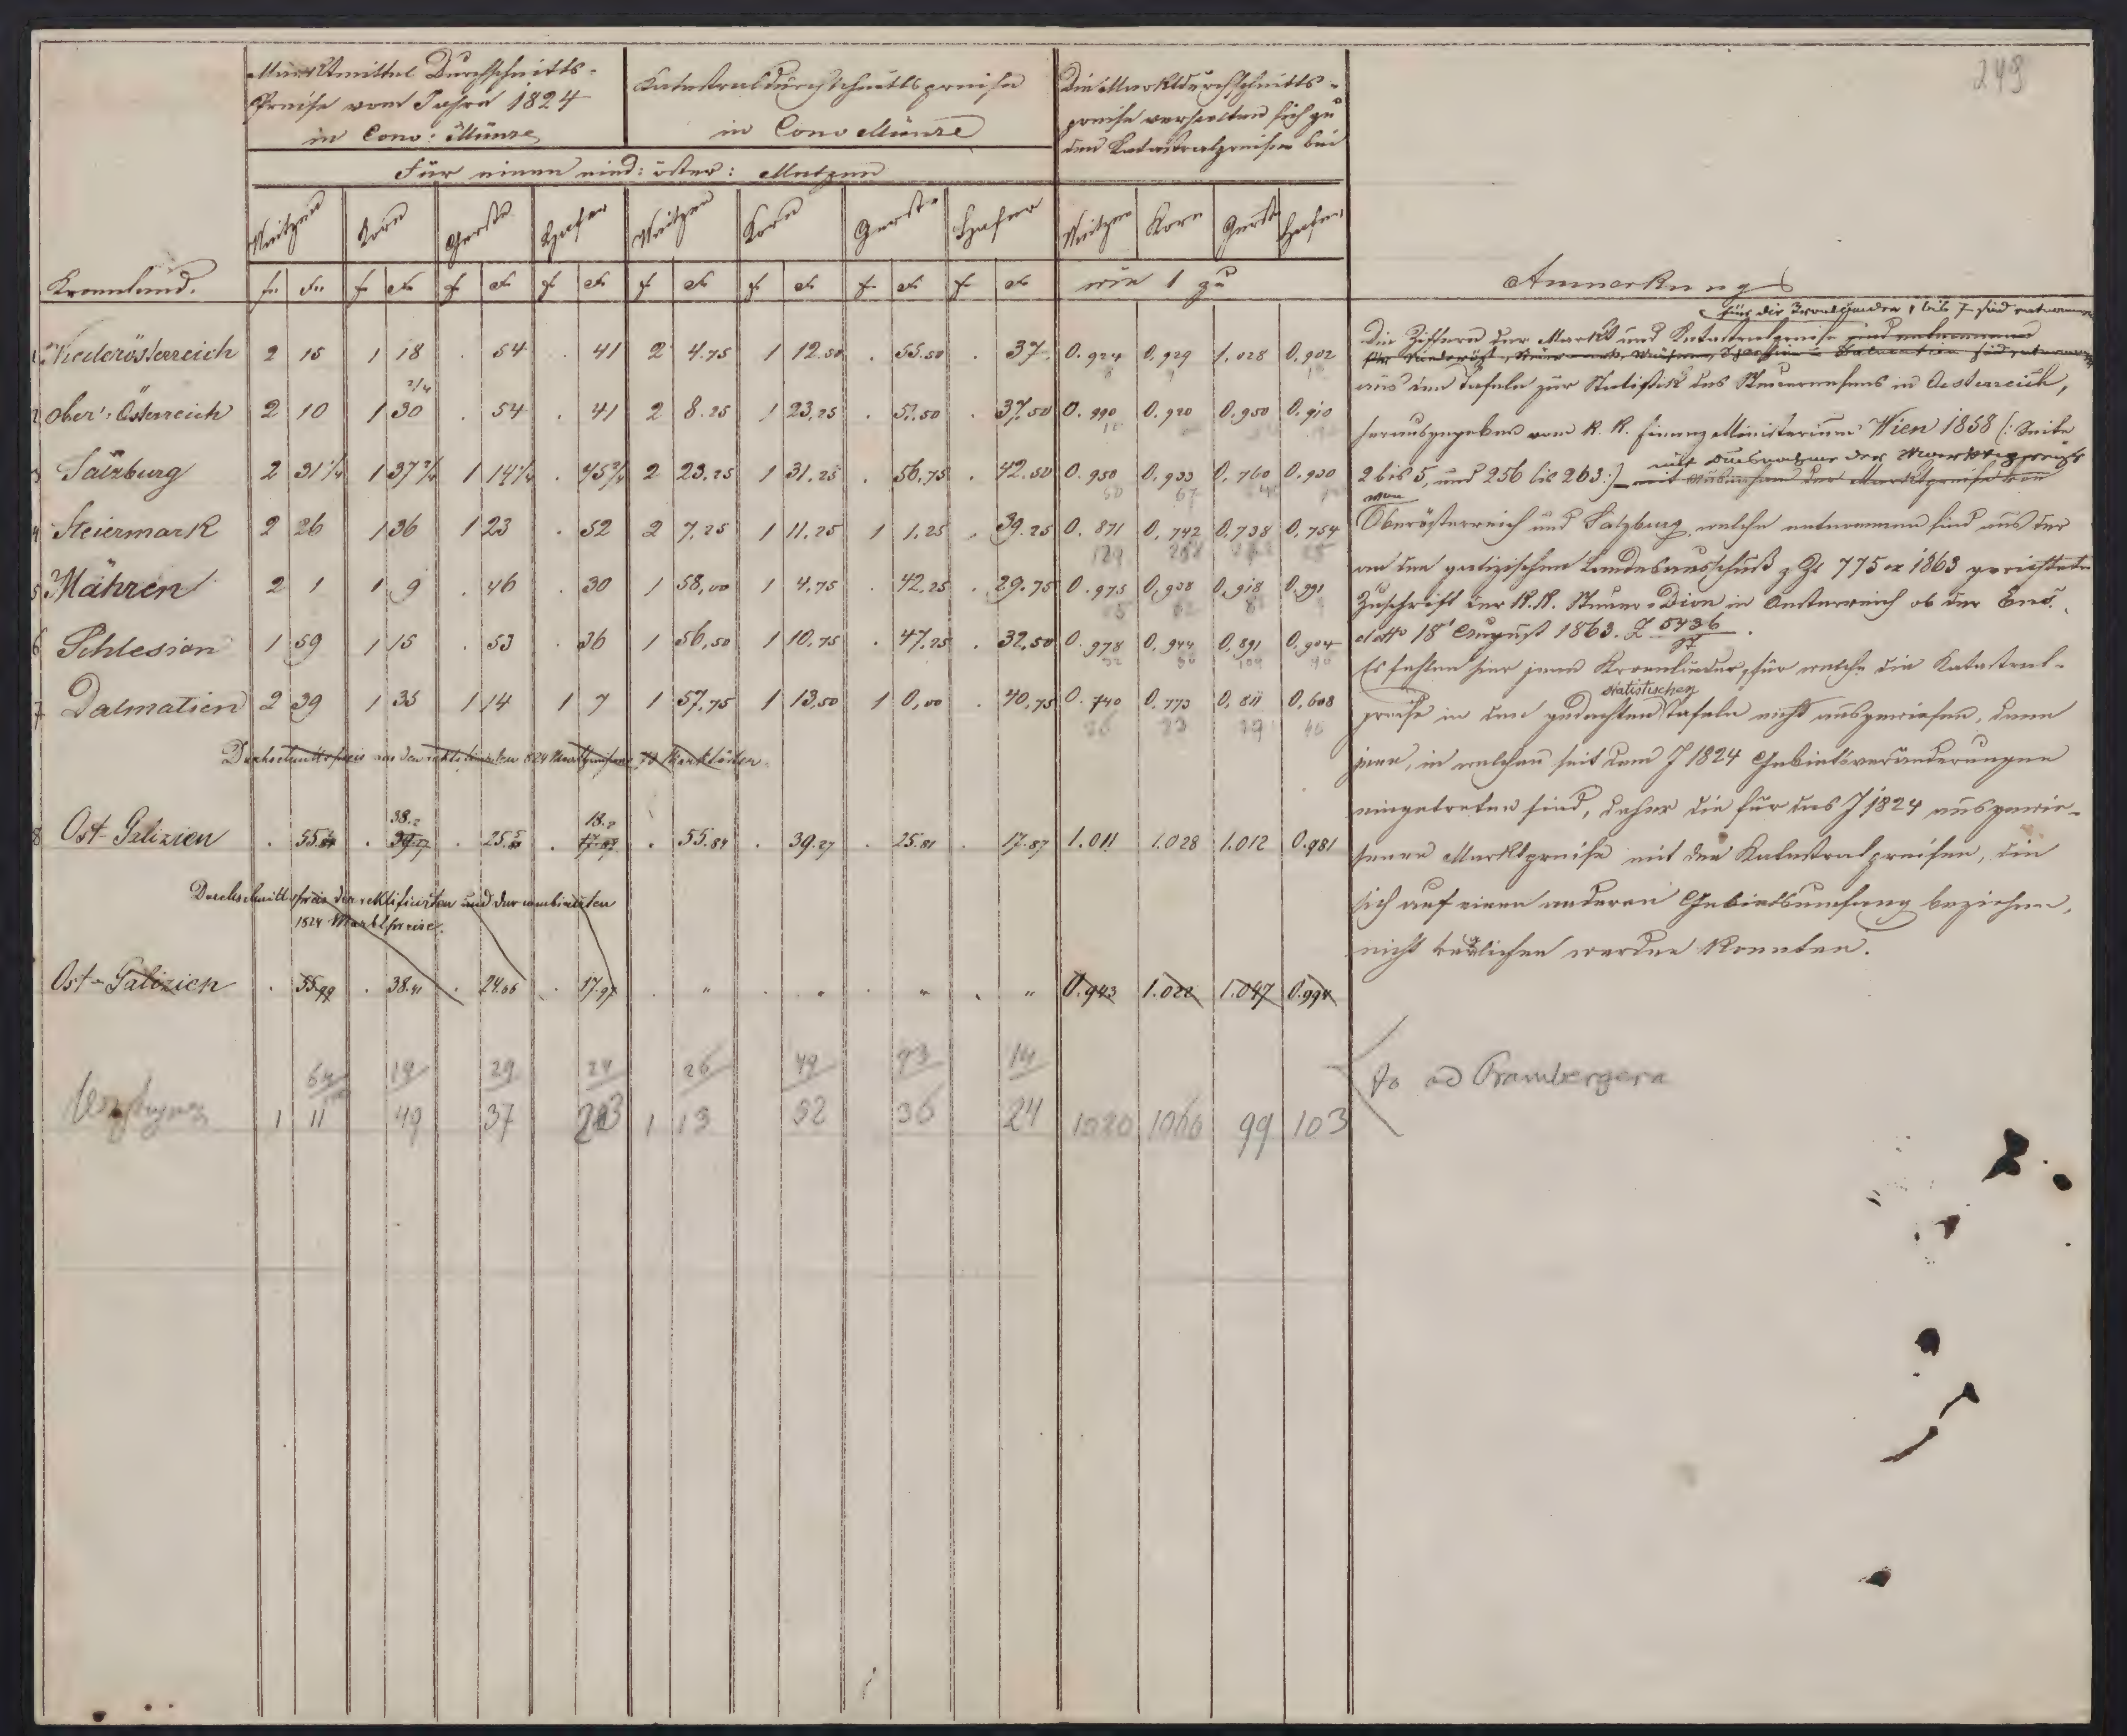 249
Marktmittel Durchschnitts-
Preise vom Jahre 1824
in Conv: Münze
Katastraldurchschnittspreise
in Conv Münze
Die Marktdurchschnitts-
preise verhalten sich zu
den Katastralpreisen bei
Für einen nied: öster: Metzen
Weitzen Korn Gerste Hafer Weitzen Korn Gerste Hafer Weitzen Korn Gerste Hafer
Kronland. f xr f xr f xr f xr f xr f xr f xr f xr wie 1 zu
Anmerkung
1 Niederösterreich 2 15 1 18 . 54 . 41 2 4.75 1 12.50 . 55.50 . 37. 0.924 0.929 1.028 0.902
2 Ober: Österreich 2 10 1 30 2/4 . 54 . 41 2 8.25 1 23.25 . 51.50 . 37.50 0.990 0.920 0.950 0.910
3 Salzburg 2 31 1/4 1 37 2/4 1 14 1/4 . 45 3/4 2 23.25 1 31.25 . 56.75 . 42.50 0.950 0.933 0.760 0.930
4 Steiermark 2 26 1 36 1 23 . 52 2 7.25 1 11.25 1 1.25 . 39.25 0.871 0.742 0.738 0.754
5 Mähren 2 1 1 9 . 46 . 30 1 58,00 1 4.75 . 42.25 . 29.75 0.975 0,938 0,918 0.991
6 Schlesien 1 59 1 15 . 53 . 36 1 56,50 1 10.75 . 47.25 . 32.50 0.978 0.944 0,891 0,904
7 Dalmatien 2 39 1 35 1 14 1 7 1 57,75 1 13,50 1 0,00 . 40,75 0.740 0.773 0.811 0,608
Durchschnittspreis aus den rektifizirten 1824 Marktpreisen Marktorten
38.2 18.2
8 Ost-Galizien . 55. . 39.27 . 25. . 17.87 . 55.84 . 39.27 . 25.81 . 17.87 1.011 1.028 1.012 0.981
Durchschnittspreis der rektificirten und der combinirten
1824 Marktpreise.
Ost-Galizien . 55.99 . 38.41 . 24.66 . 17.97 . " . " . " . " 0.943 1.022 1.047 0.994
64 19 29 24 26 49 93 14
1 11 49 37 1 13 52 36 24 1020 1066 99 103
für die Kronländer 1 bis 7 sind entnommen
Die Ziffern der Markt und Katastralpreise sind entnommen
für Niederöst, Steiermark, Mähren, Schlesien u Dalmatien sind entnommen
aus den Tafeln zur Statistik des Steuerwesens in Oesterreich,
herausgegeben vom K. K. Finanz Ministerium Wien 1858 (: Seite
2 bis 5, und 256 bis 263:) mit Ausnahme der Marktpreise
mit Ausnahme der Marktpreise von
von
Oberösterreich und Salzburg, welche entnommen sind aus der
an den galizischen Landesausschuß z Zl 775 ex 1863 gerichteten
Zuschrift der K. K. Steuer-Dion in Oesterreich ob der Ens.
ddto 18t August 1863. Z 5436
Es fehlen hier jene Kronländer, für welche die Katastral-
statistischen
preise in den gedachten Tafeln nicht ausgewiesen, dann
jene, in welchen seit dem J 1824 Gebietsveränderungen
eingetreten sind, daher die für das J 1824 ausgewie-
senen Marktpreise mit den Katastralpreisen, die
sich auf einen anderen Gebietsumfang beziehen,
nicht verglichen werden konnten.